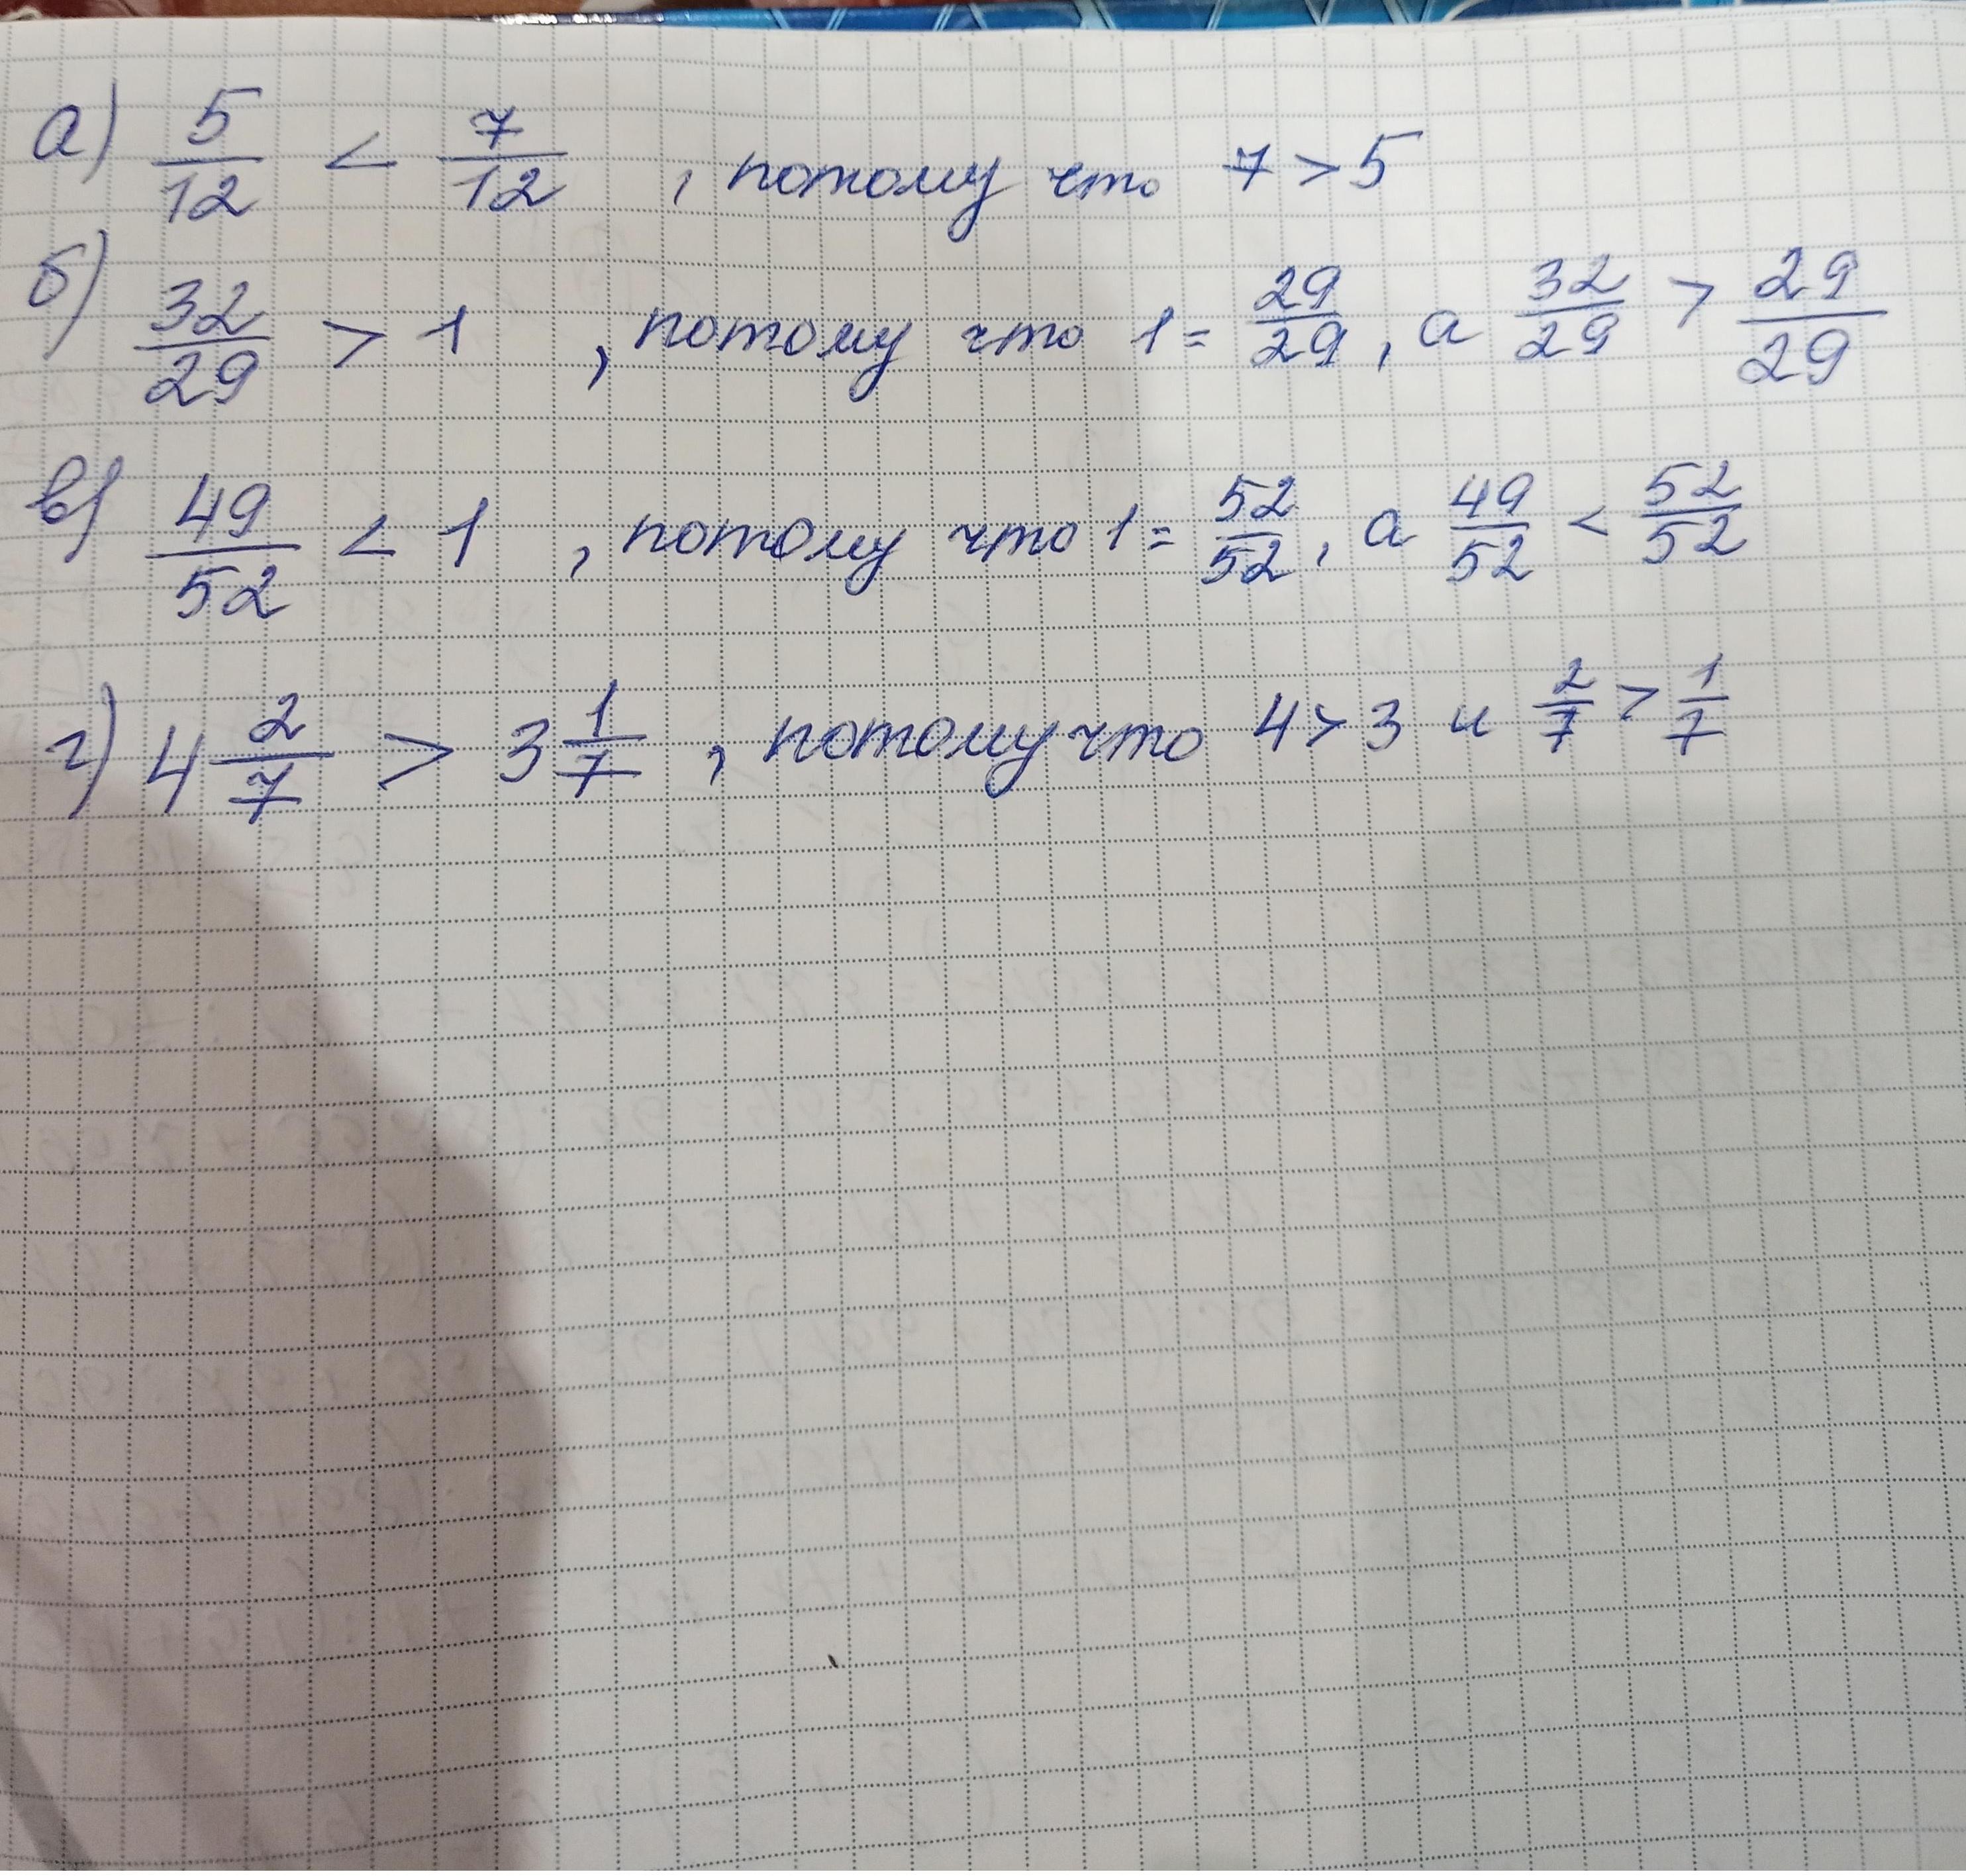 а) 5/12 < 7/12, потому что 7 > 5
б) 32/29 > 1, потому что 1 = 29/29, а 32/29 > 29/29
в) 49/52 < 1, потому что 1 = 52/52, а 49/52 < 52/52
г) 4 2/7 > 3 1/7, потому что 4 > 3 и 2/7 > 1/7